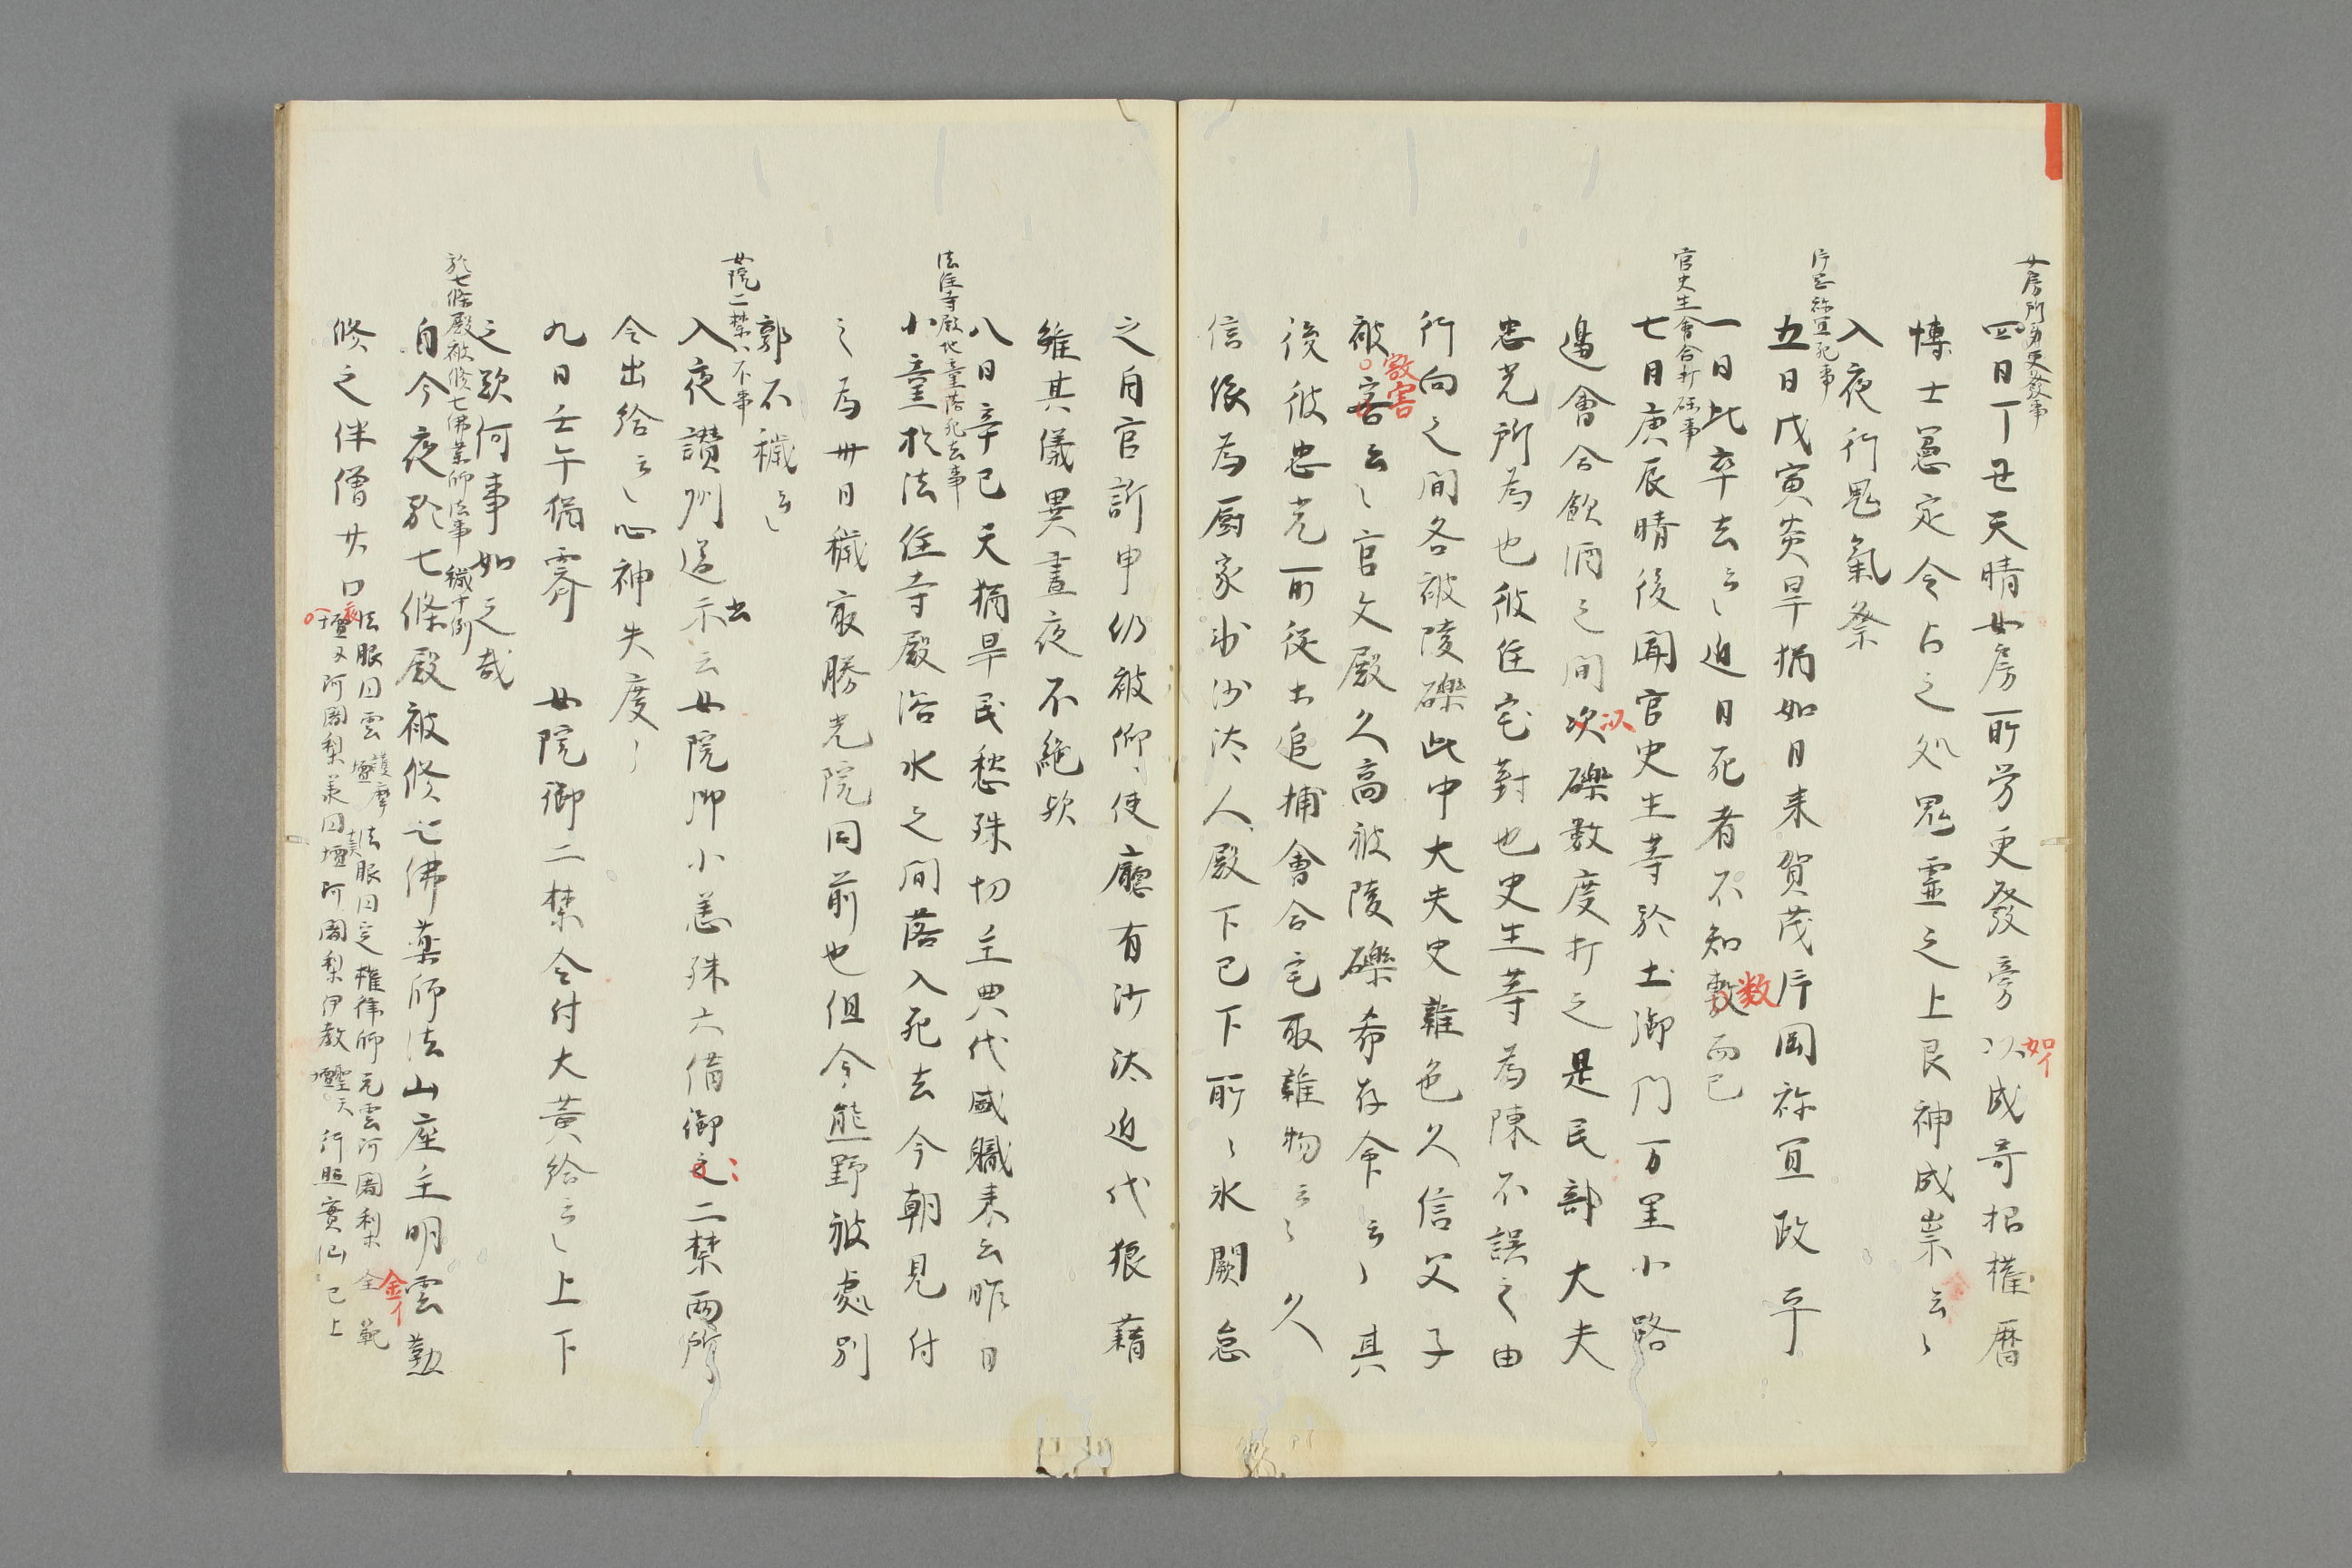 女房所労更発事
四日丁丑天晴女房所労更發旁以成奇招權暦
如イ
博士憲定令占之処鬼霊之上艮神成祟云〻
入夜行鬼氣祭
片岡祢宜死事
五日戊寅炎旱猶如日来賀茂片岡祢宜政平
一日比卒去云〻近日死者不知數而已
数
官史生會合打砾事
七日庚辰晴後聞官史生等於土御門万里小路
邊會合飲酒之間次礫數度打之是民部大夫
以
忠光所為也彼住宅對也史生等為陳不誤之由
行向之間各被陵礫此中大夫史雜色久信父子
被害云〻官文殿久高被陵礫希存命云〻其
敦害
後彼忠光所従士追捕會合宅取雜物云〻久
信依為厨家沙汰人殿下已下所〻氷闕怠
之自官訴申仍被仰使廳有沙汰近代狼藉
雖其儀異晝夜不絶歟
法住寺殿池童落死去事
八日辛巳天猶旱民愁殊切主典代盛職来云昨日
小童於法住寺殿浴水之間落入死去今朝見付
之為卅日穢最勝光院同前也但今熊野被處別
郭不穢云〻
女院二禁不事
入夜讃州送示云女院御小恙殊六借御之二禁両所
出
令出給云〻心神失度〻
九日壬午猶霽 女院御二禁令付大黄給云〻上下
之歎何事如之哉
於七條殿被修七佛薬師法事 穢中例
自今夜於七條殿被修七佛薬師法山座主明雲勤
修之伴僧廿口
法眼同雲護摩壇法眼同定權律師元雲阿闍梨全範
金イ
壇又阿闍梨兼同壇阿闍梨伊教聖天壇行照實仙已上